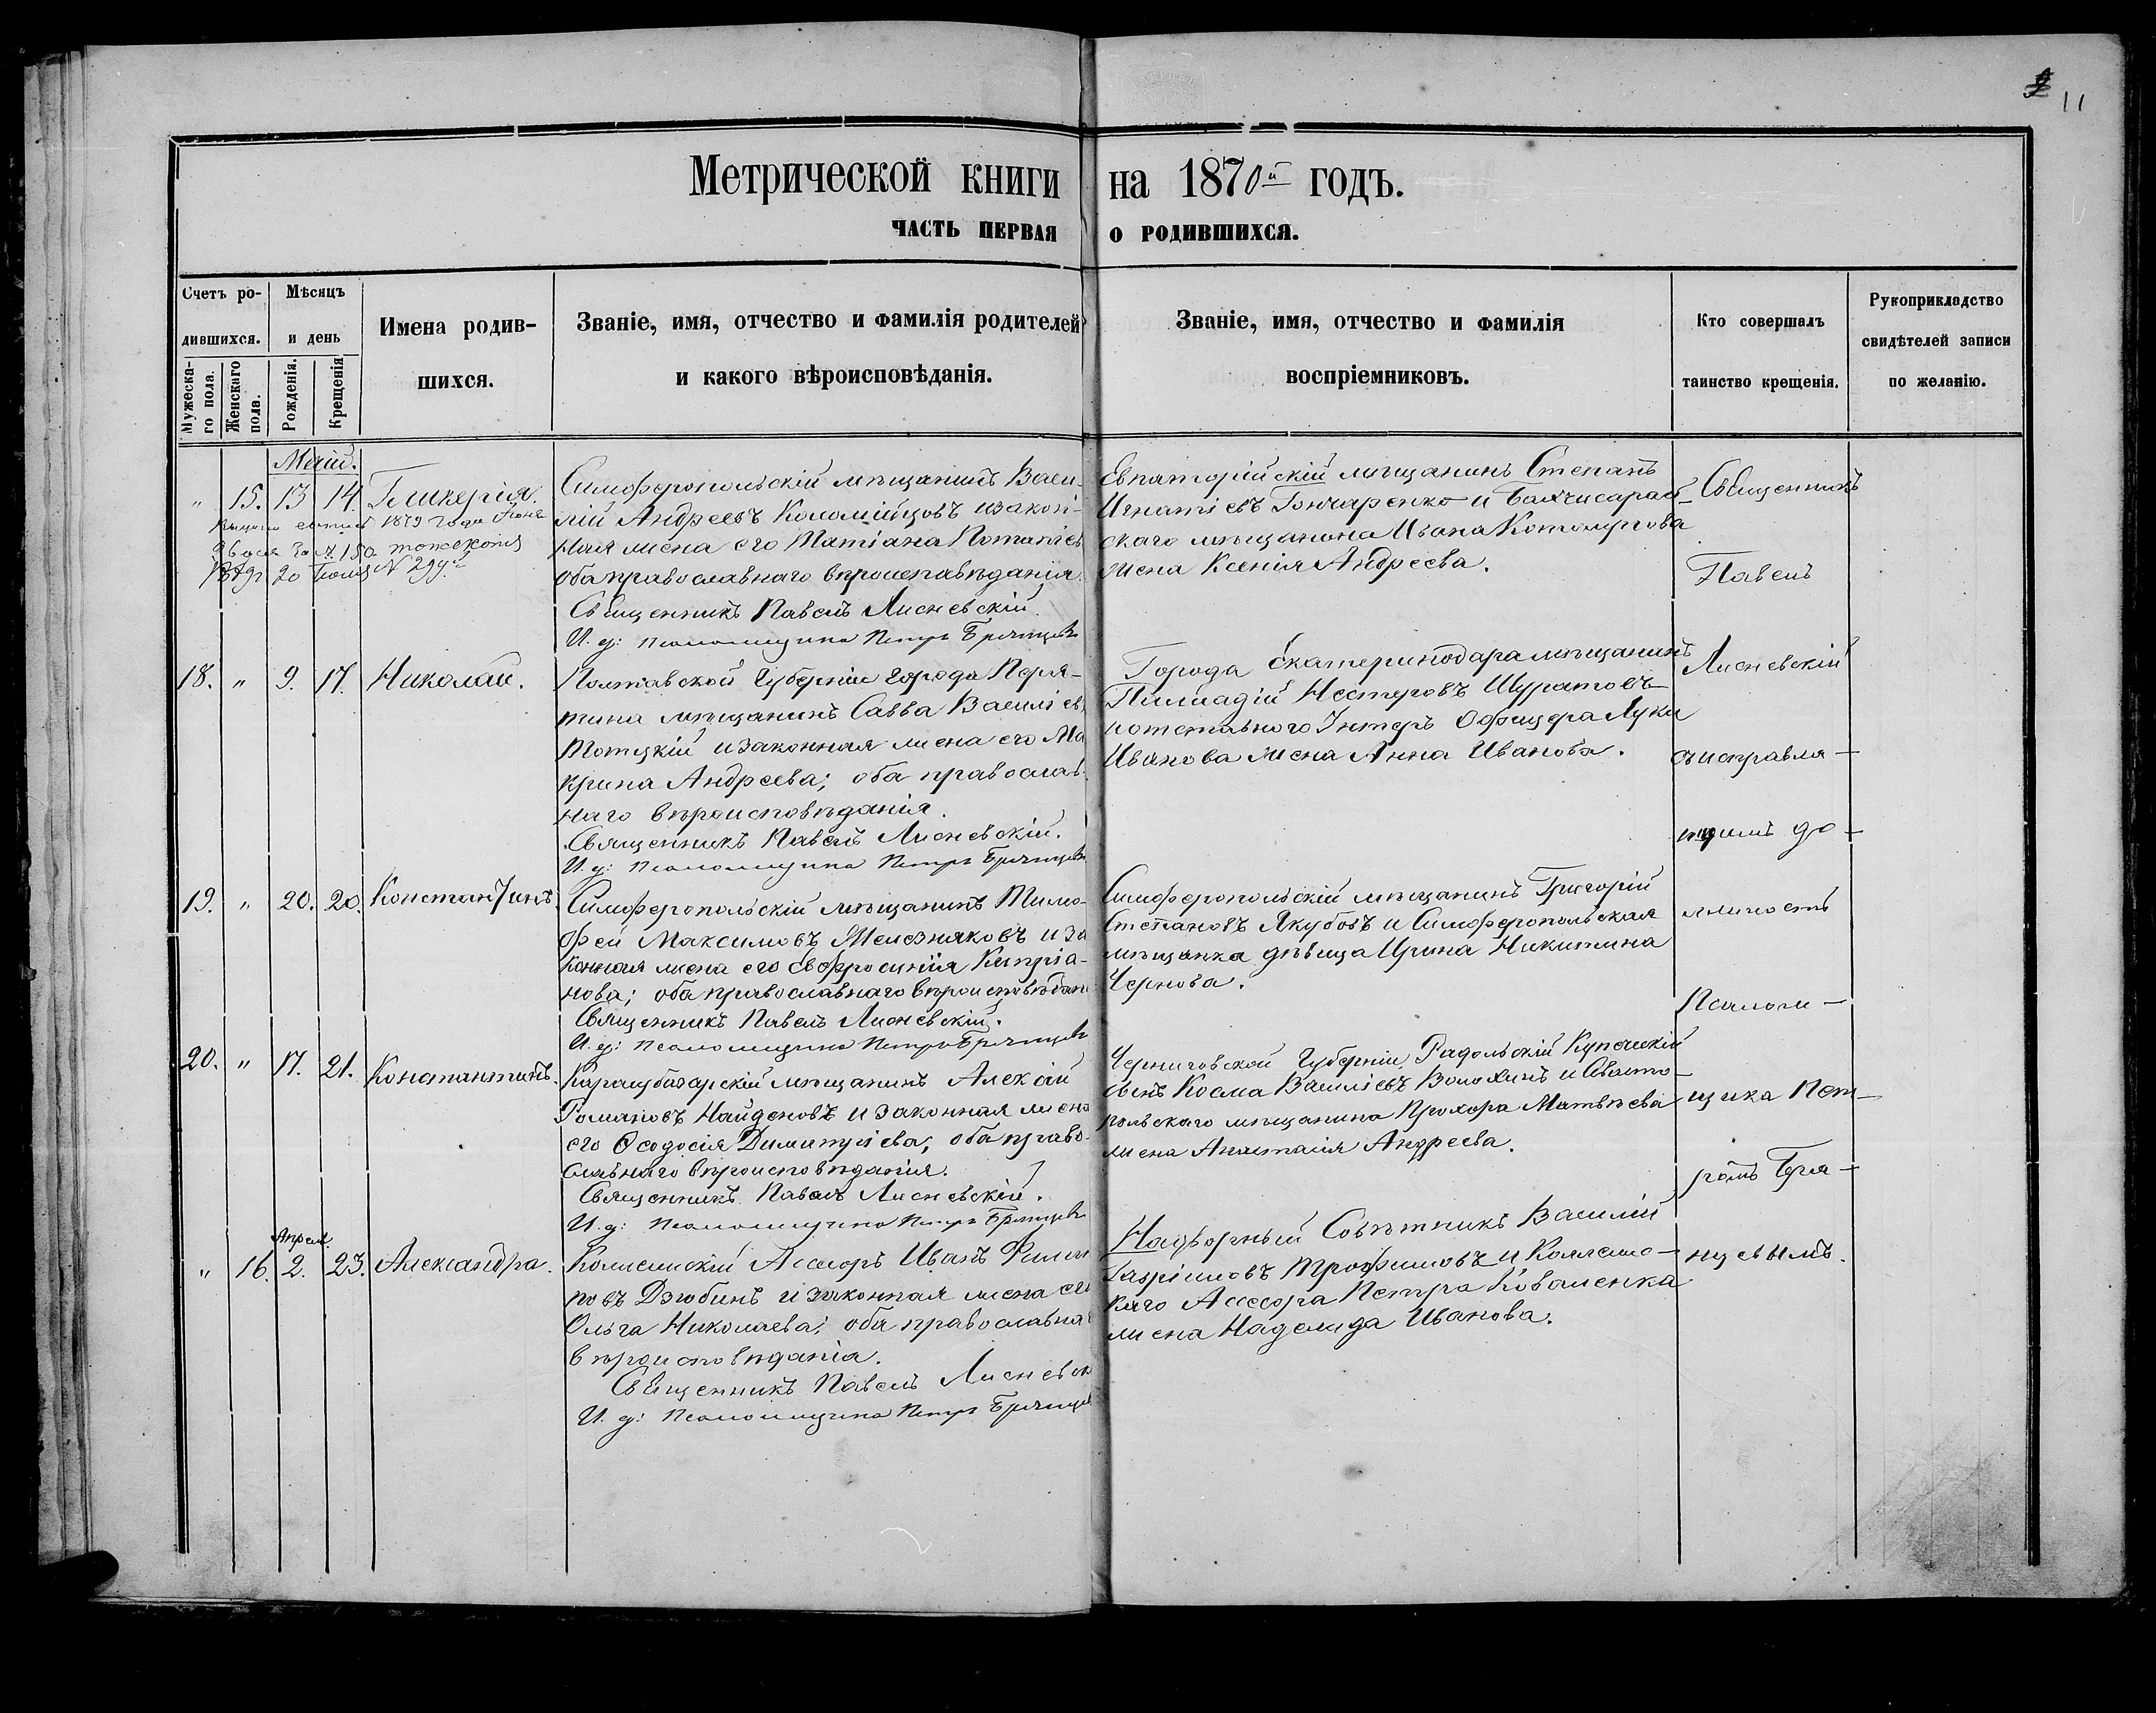 11
Метрической книги на 1870й годъ.
ЧАСТЬ ПЕРВАЯ О РОДИВШИХСЯ.
Счетъ ро-
дившихся.
Мужеска-
го пола.
Женскаго
пола.
Мѣсяцъ
и день
Рожденія.
Крещенія
Имена родив-
шихся.
Званіе, имя, отчество и фамилія родителей
и какого вѣроисповѣданія.
Званіе, имя, отчество и фамилія
воспріемниковъ.
Кто совершалъ
таинство крещенія.
Рукоприкладство
свидѣтелей записи
по желанію.
Май.
" 15. 13 14. Гликерія.
1879 года
за № 150
20 № 299
Симферопольскій мѣщанинъ Васи-
лій Андреевъ Коломійцовъ изакон-
ная жена его Татіана
оба православнаго вѣроисповѣданія.
Священникъ Павелъ Лисневскій
И. д: псаломщика Петръ Брянцевъ
Евпаторійскій мѣщанинъ Степанъ
Игнатіевъ Гончаренко и Бахчисарай-
скаго мѣщанина Ивана
жена Ксенія Андреева.
18. " 9. 17. Николай.
Полтавской Губерніи города Пиря-
тина мѣщанинъ Савва Василіев
Тотцкій изаконная жена его Ма
крина Андреева; оба православ-
наго вѣроисповѣданія.
Священникъ Павелъ Лисневскій.
И. д: псаломщика Петръ Брянцевъ
Города Екатеринодара мѣщанинъ
Нестеровъ Шуратовъ
иотставного Унтеръ Офицера Луки
Иванова жена Анна Иванова.
19. " 20. 20. Константинъ.
Симферопольскій мѣщанинъ Тимо-
фей Максимовъ Железняковъ иза
конная жена его Евфросинія Кипріа-
нова; оба православнаго вѣроисповѣдан
Священникъ Павелъ Лисневскій.
И. д: псаломщика Петръ Брянцевъ
Симферопольскій мѣщанинъ Григорій
Степановъ Якубовъ и Симферопольская
мѣщанка дѣвица Ирина Никитина
Чернова.
20. " 17. 21. Константинъ.
Карасубазарскій мѣщанинъ Алексій
Романовъ Найденовъ изаконная жена
его Ѳеодосія Димитріева; оба право-
славнаго вѣроисповѣданія.
Священникъ Павелъ Лисневскій.
И. д: псаломщика Петръ Брянцевъ
Черниговской Губерніи, Купеческій
сынъ Косма Василіевъ Волохинъ
польскаго мѣщанина Прохора Матвѣева
жена Анастасія Андреева.
Апрел.
" 16. 2. 23. Александра.
Колежскій Асесоръ Иванъ Филип
повъ Дзюбинъ изаконная жена его
Ольга Николаева; оба православна
вѣроисповѣданія.
Священникъ Павелъ Лисневск
И. д: псаломщика Петръ Брянцев
Надворный Совѣтникъ Василій
Гавріиловъ Трофимовъ и Коллежс-
каго Асессора Петра Коваленка
жена Надежда Иванова.
Священникъ
Павелъ
Лисневскій
съисправля-
ющимъ до-
лжность
Псалом-
щика Пет-
ромъ Бря-
нцевымъ.